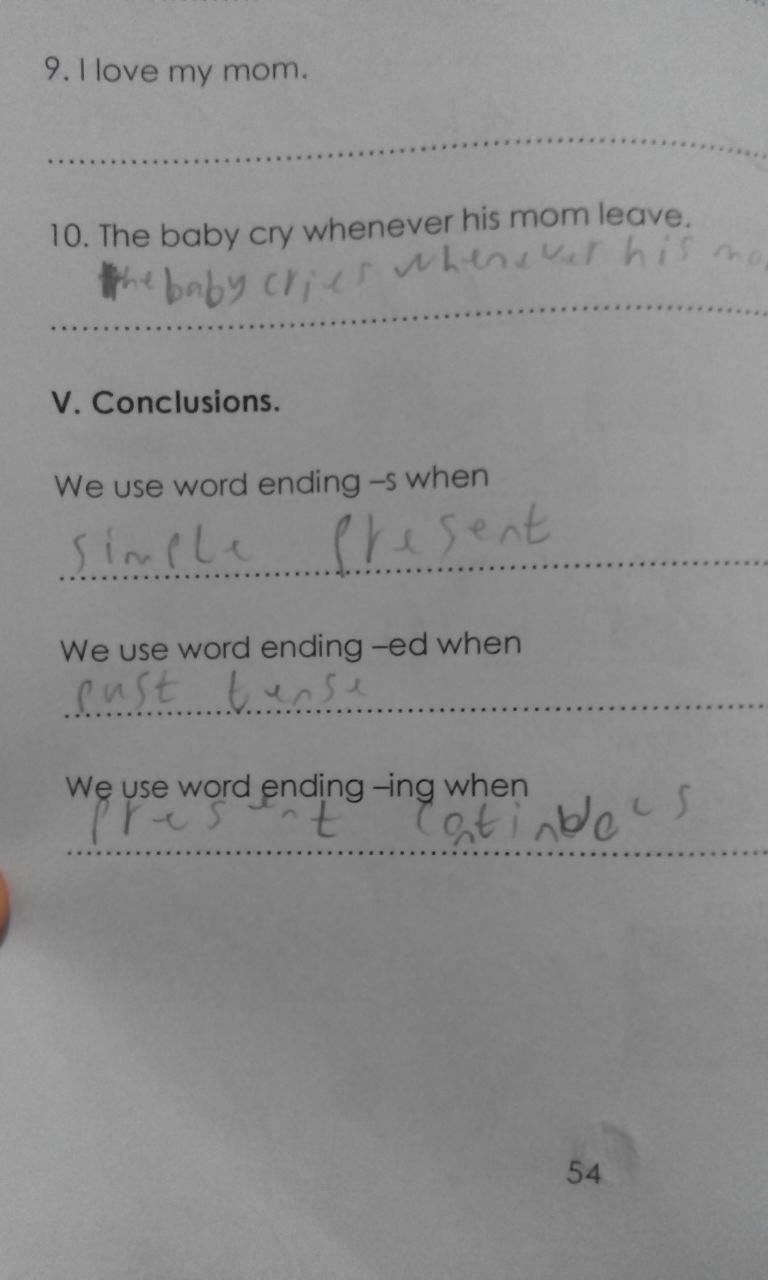 9. I love my mom.
10. The baby cry whenever his mom leave.
the baby cries whenever his mo
V. Conclusions.
We use word ending –s when
simple present
We use word ending –ed when
past tense
We use word ending –ing when
present
54